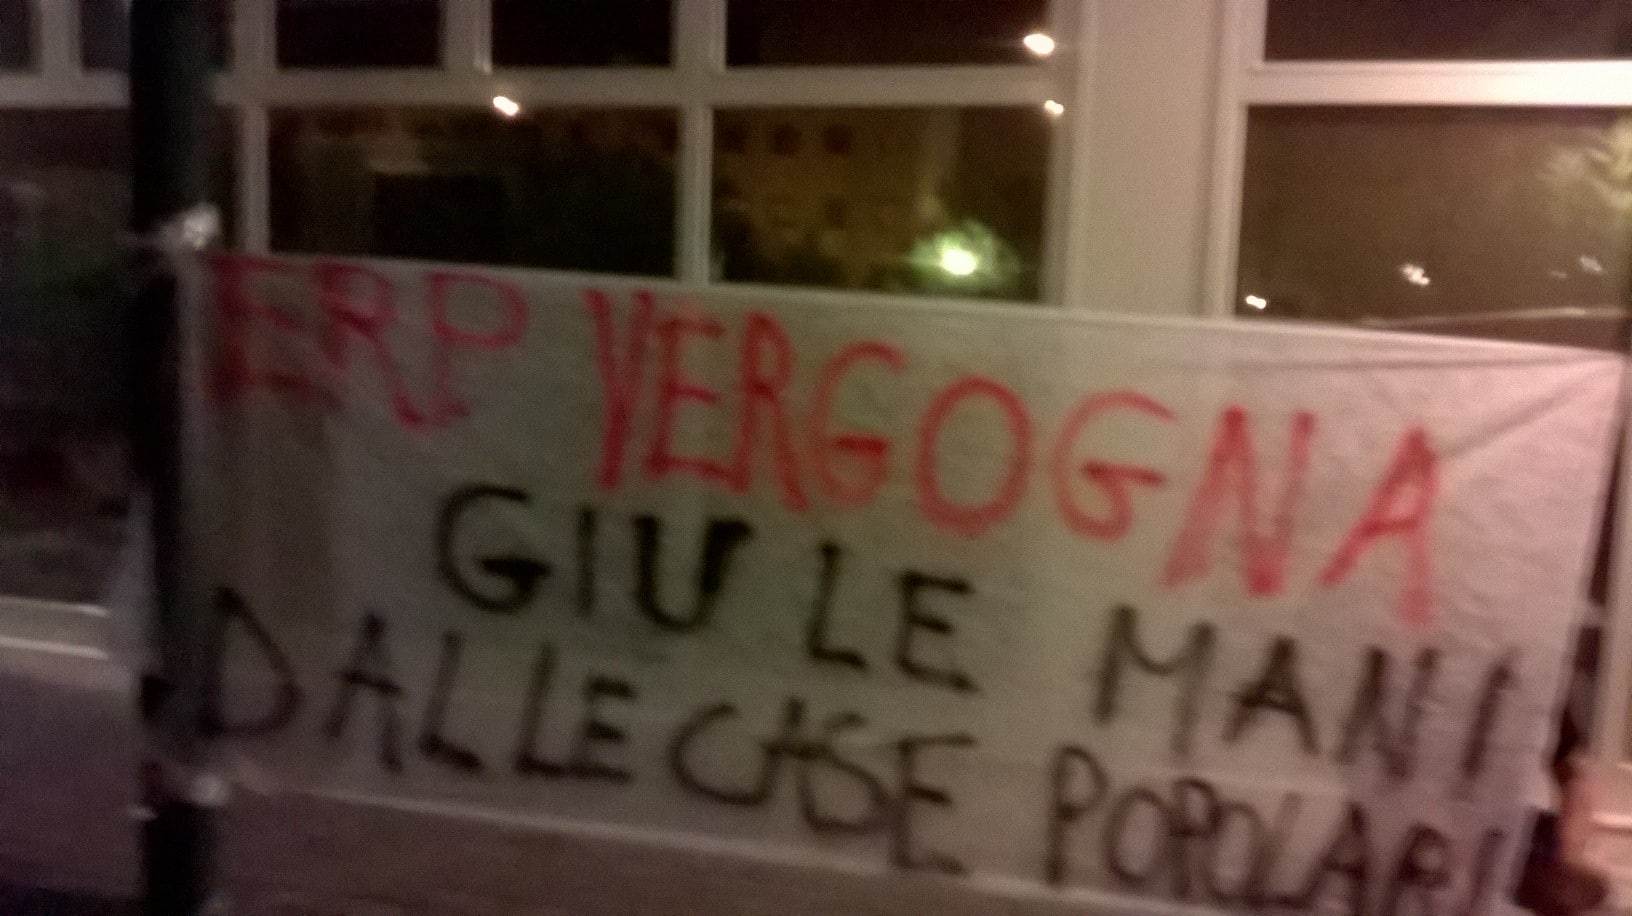 ERP VERGOGNA
GIU LE MANI
DALLE CASE POPOLARI